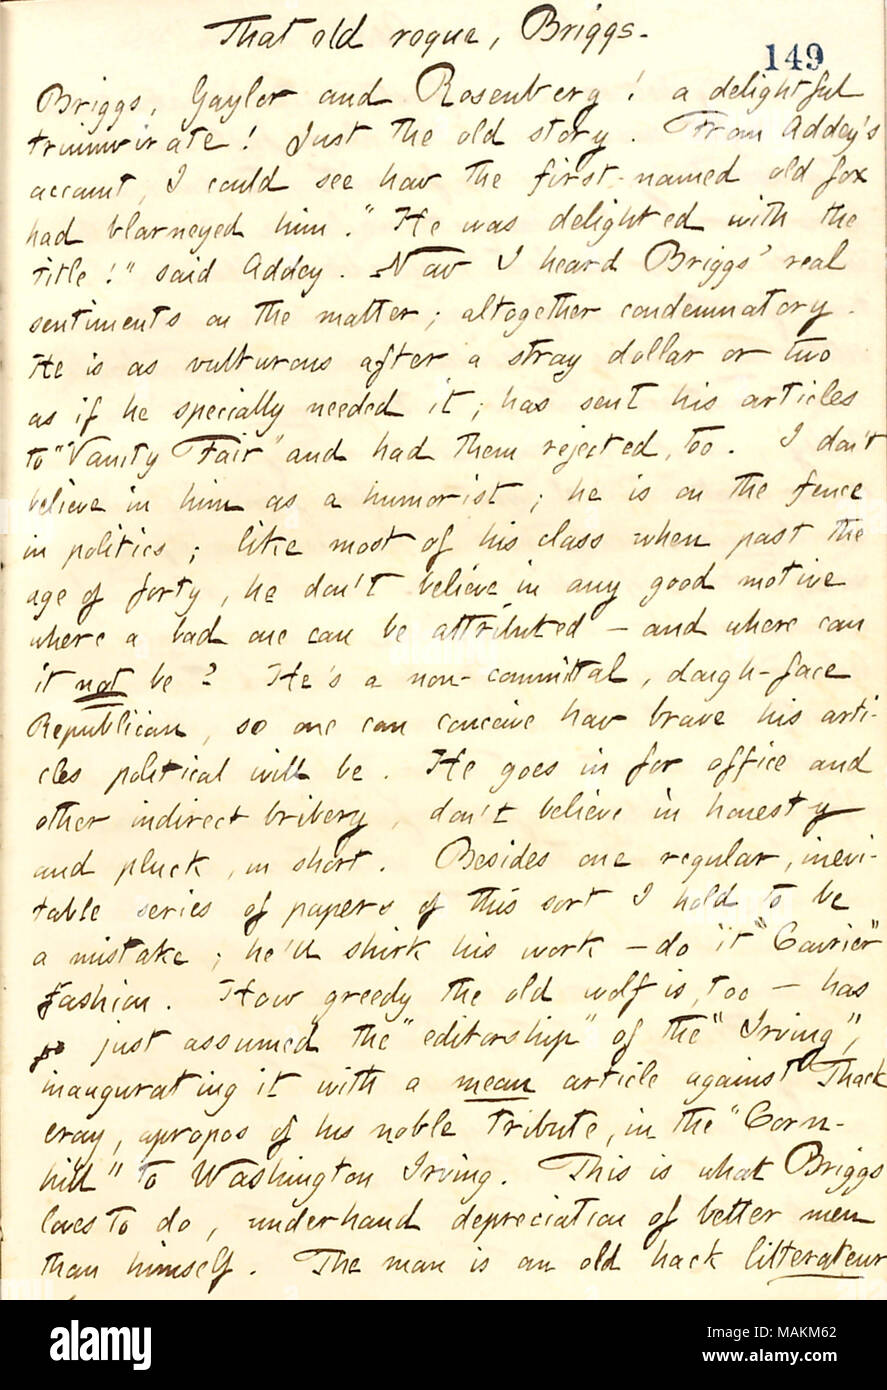 That old rogue, Briggs.
149
Briggs, Gayler and Rosenberg! a delightful
triumvirate! Just the old story. From Addey's
account, I could see how the first-named old fox
had blarneyed him. "He was delighted with the
title!" said Addey. Now I heard Briggs' real
sentiments on the matter; altogether condemnatory.
He is as vulturous after a stray dollar or two
as if he specially needed it; has sent his articles
to "Vanity Fair" and had them rejected, too. I don't
believe in him as a humorist; he is on the fence
in politics; like most of his class when past the
age of forty, he don't believe in any good motive
where a bad one can be attributed — and where can
it not be? He's a non-committal, dough-face
Republican, so one can conceive how brave his arti-
cles political will be. He goes in for office and
other indirect bribery, don't believe in honesty
and pluck, in short. Besides one regular, inevi-
table series of papers of this sort I hold to be
a mistake; he'll shirk his work — do it "Courier"
fashion. How greedy the old wolf is, too — has
just assumed the "editorship" of the "Irving",
inaugurating it with a mean article against Thack
eray, apropos of his noble tribute, in the "Corn-
hill" to Washington Irving. This is what Briggs
loves to do, underhand depreciation of better men
than himself. The man is an old hack litterateur
alamy
Image ID: MAKM62
www.alamy.com